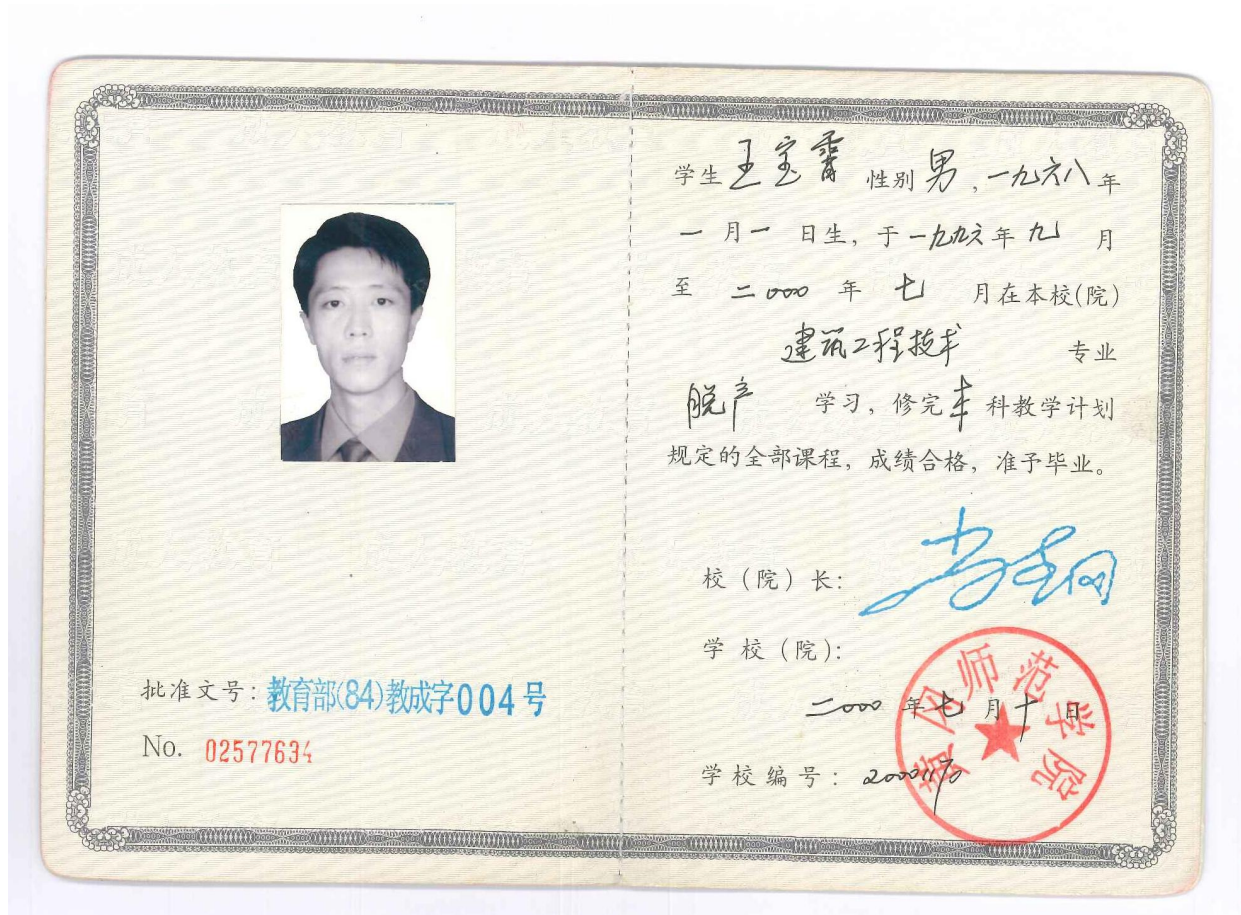 批准文号：教育部(84)教成字004号
No. 02577634
学生 王宝霄 性别 男，一九六八年
一月一日生，于一九九六年九月
至二000年七月在本校(院)
建筑工程技术 专业
脱产 学习，修完本科教学计划
规定的全部课程，成绩合格，准予毕业。
校（院）长：
学校（院）：
黄冈师范学院
二000年七月十日
学校编号：20001170